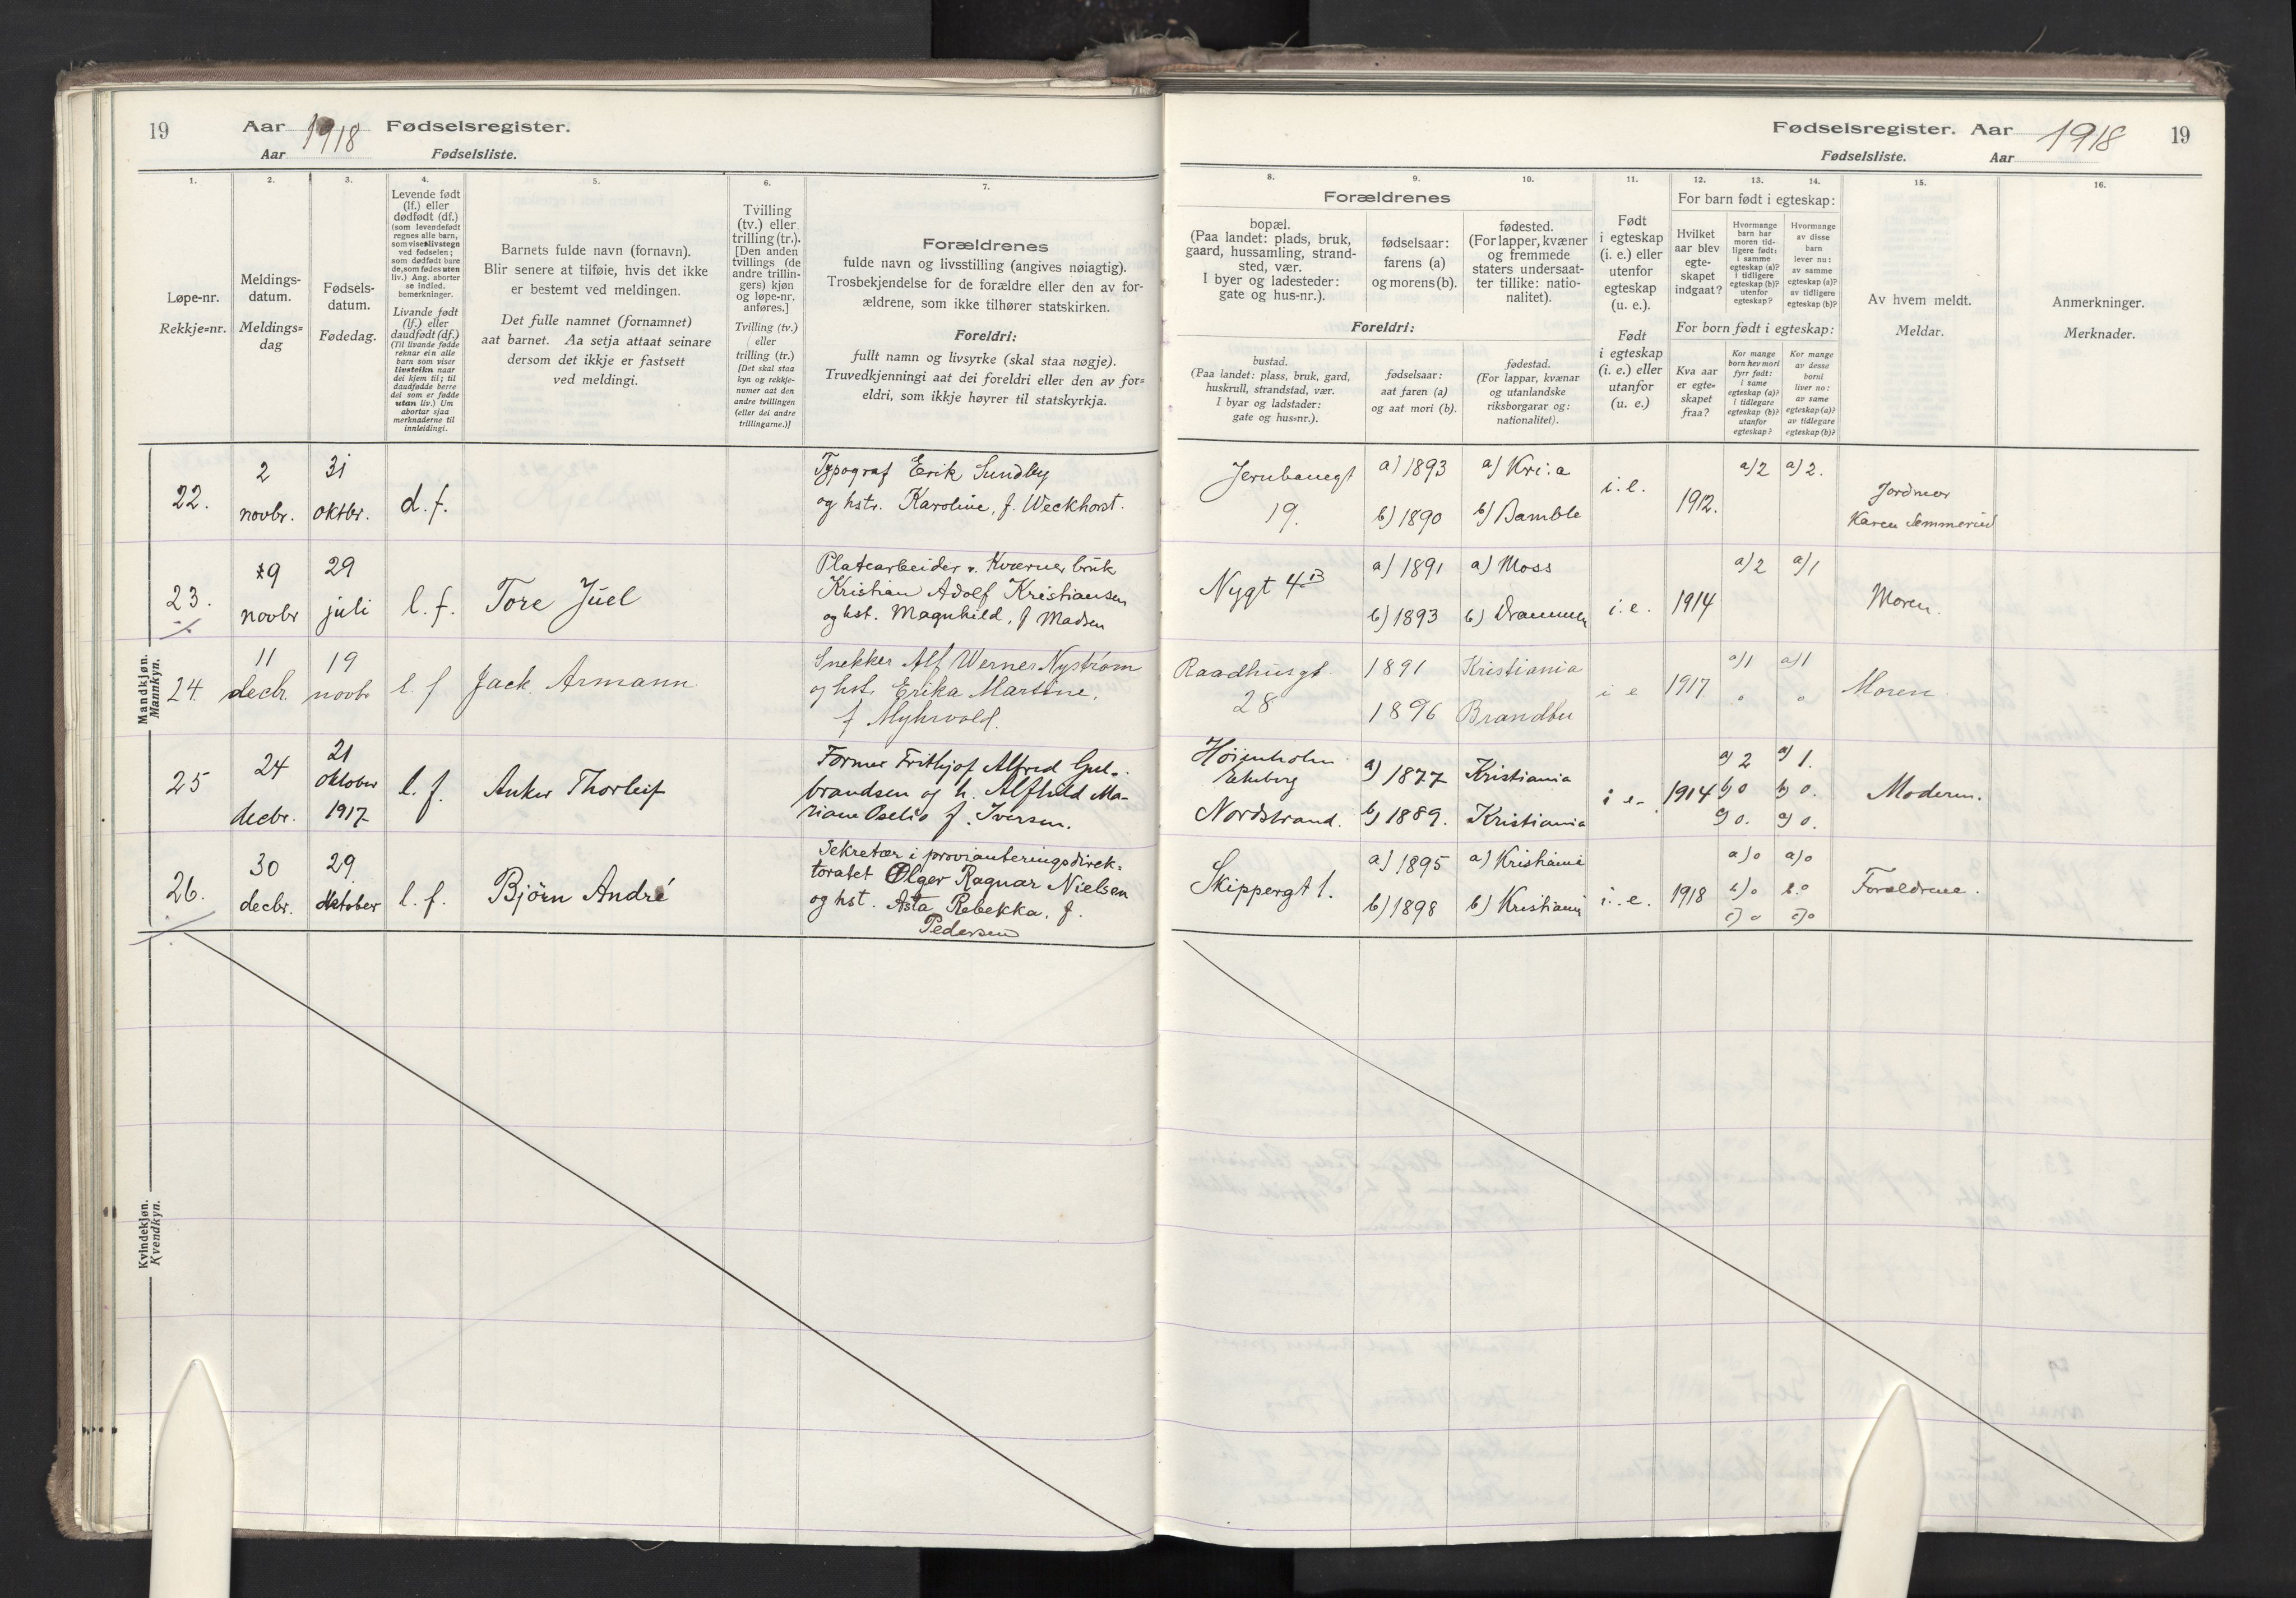 19
Aar 1918 Fødselsregister.
Aar Fødselsliste.
1.
Løpe-nr.
Rekkje-nr.
2.
Meldings-
datum.
Meldings-
dag
3.
Fødsels-
datum.
Fødedag.
4.
Levende født
(lf.) eller
dødfødt (df.)
(som levendefødt
regnes alle barn,
som viser livstegn
ved fødselen;
som dødfødt bare
de, som fødes uten
liv.) Ang. aborter
se indled.
bemerkninger.
Livande født
(lf.) eller
daudfødt (df.)
(Til livande fødde
reknar ein alle
barn som viser
livsteikn naar
dei kjem til; til
daudfødde berre
dei som er fødde
utan liv.) Um
abortar sjaa
merknaderne til
innleidingi.
5.
Barnets fulde navn (fornavn).
Blir senere at tilføie, hvis det ikke
er bestemt ved meldingen.
Det fulle namnet (fornamnet)
aat barnet. Aa setja attaat seinare
dersom det ikkje er fastsett
ved meldingi.
6.
Tvilling
(tv.) eller
trilling (tr.).
[Den anden
tvillings (de
andre trillin-
gers) kjøn
og løpe-nr.
anføres.]
Tvilling (tv.)
eller
trilling (tr.)
[Det skal staa
kyn og rekkje-
numer aat den
andre tvillingen
(eller dei andre
trillingarne.)]
7.
Forældrenes
fulde navn og livsstilling (angives nøiagtig).
Trosbekjendelse for de forældre eller den av for-
ældrene, som ikke tilhører statskirken.
Foreldri:
fullt namn og livsyrke (skal staa nøgje).
Truvedkjenningi aat dei foreldri eller den av for-
eldri, som ikkje høyrer til statskyrkja.
Mandkjøn.
Mannkyn.
22.
2
novbr.
31
oktbr.
d.f.
Typograf Erik Sundby
og hstr. Karoline, f. Weckhorst.
23.
29
novbr
29
juli
l.f.
Tore Juel
Platearbeider v. Kværner bruk
Kristian Adolf Kristiansen
og hst. Magnhild, f Madsen
24.
11
decbr.
19
novbr
l f
Jack Armann
Snekker Alf Werner Nystrøm
og hst. Erika Martine,
f Myhrvold.
25
24
decbr.
21
oktober
1917
l. f.
Anker Thorleif
Former Frithjof Alfred Gul-
brandsen og h. Alfhild Ma-
riane Oselio f. Iversen.
26.
30
decbr.
29
oktober
l. f.
Bjørn André
Sekretær i provianteringsdirek-
toratet Olger Ragnar Nielsen
og hst. Asta Rebekka, f.
Pedersen
Kvindekjøn.
Kvendkyn.
Fødselsregister. Aar 1918
19
Fødselsliste. Aar
Forældrenes
8.
bopæl.
(Paa landet: plads, bruk,
gaard, hussamling, strand-
sted, vær.
I byer og ladesteder:
gate og hus-nr.).
9.
fødselsaar:
farens (a)
og morens (b).
10.
fødested.
(For lapper, kvæner
og fremmede
staters undersaat-
ter tillike: natio-
nalitet).
Foreldri:
bustad.
(Paa landet: plass, bruk, gard,
huskrull, strandstad, vær.
I byar og ladstader:
gate og hus-nr.).
fødselsaar:
aat faren (a)
og aat mori (b).
fødestad.
(For lappar, kvænar
og utanlandske
riksborgarar og:
nationalitet).
11.
Født
i egteskap
(i. e.) eller
utenfor
egteskap
(u. e.).
Født
i egteskap
(i. e.) eller
utanfor
(u. e.)
12. 13. 14.
For barn født i egteskap:
Hvilket
aar blev
egte-
skapet
indgaat?
Hvormange
barn har
moren tid-
ligere født:
i samme
egteskap (a)?
i tidligere
egteskap (b)?
utenfor
egteskap?
Hvormange
av disse
barn
lever nu:
av samme
egteskap (a)?
av tidligere
egteskap (b)?
For born født i egteskap:
Kva aar
er egte-
skapet
fraa?
Kor mange
born hev mori
fyrr født:
i same
egteskap (a)?
i tidlegare
egteskap (b)?
utanfor
egteskap?
Kor mange
av desse
borni
liver no:
av same
egteskap (a)?
av tidlegare
egteskap (b)?
15.
Av hvem meldt.
Meldar.
16.
Anmerkninger.
Merknader.
Jernbanegt
19.
a) 1893
b) 1890
a) Kri:a
b) Bamble
i.e.
1912.
a) 2 a) 2.
Jordmor
Karen
Nygt 4 B
a) 1891
b) 1893
a) Moss
b) Drammen
i.e.
1914
a) 2 a) 1
Moren.
Raadhusgt.
28
1891
1896
Kristiania
Brandbu
i e
1917
a) 1 a) 1
Moren
Høienholm
Ekeberg
Nordstrand.
a) 1877
b) 1889.
Kristiania
Kristiania
i e-
1914
a) 2 a) 1.
b) 0 b) 0.
c) 0. c) 0.
Moderen.
Skippergt 1.
a) 1895
b) 1898
a) Kristiania
b) Kristiania
i.e.
1918
a) o a) o
b) o b. o
c) o c) o
Forældrene.